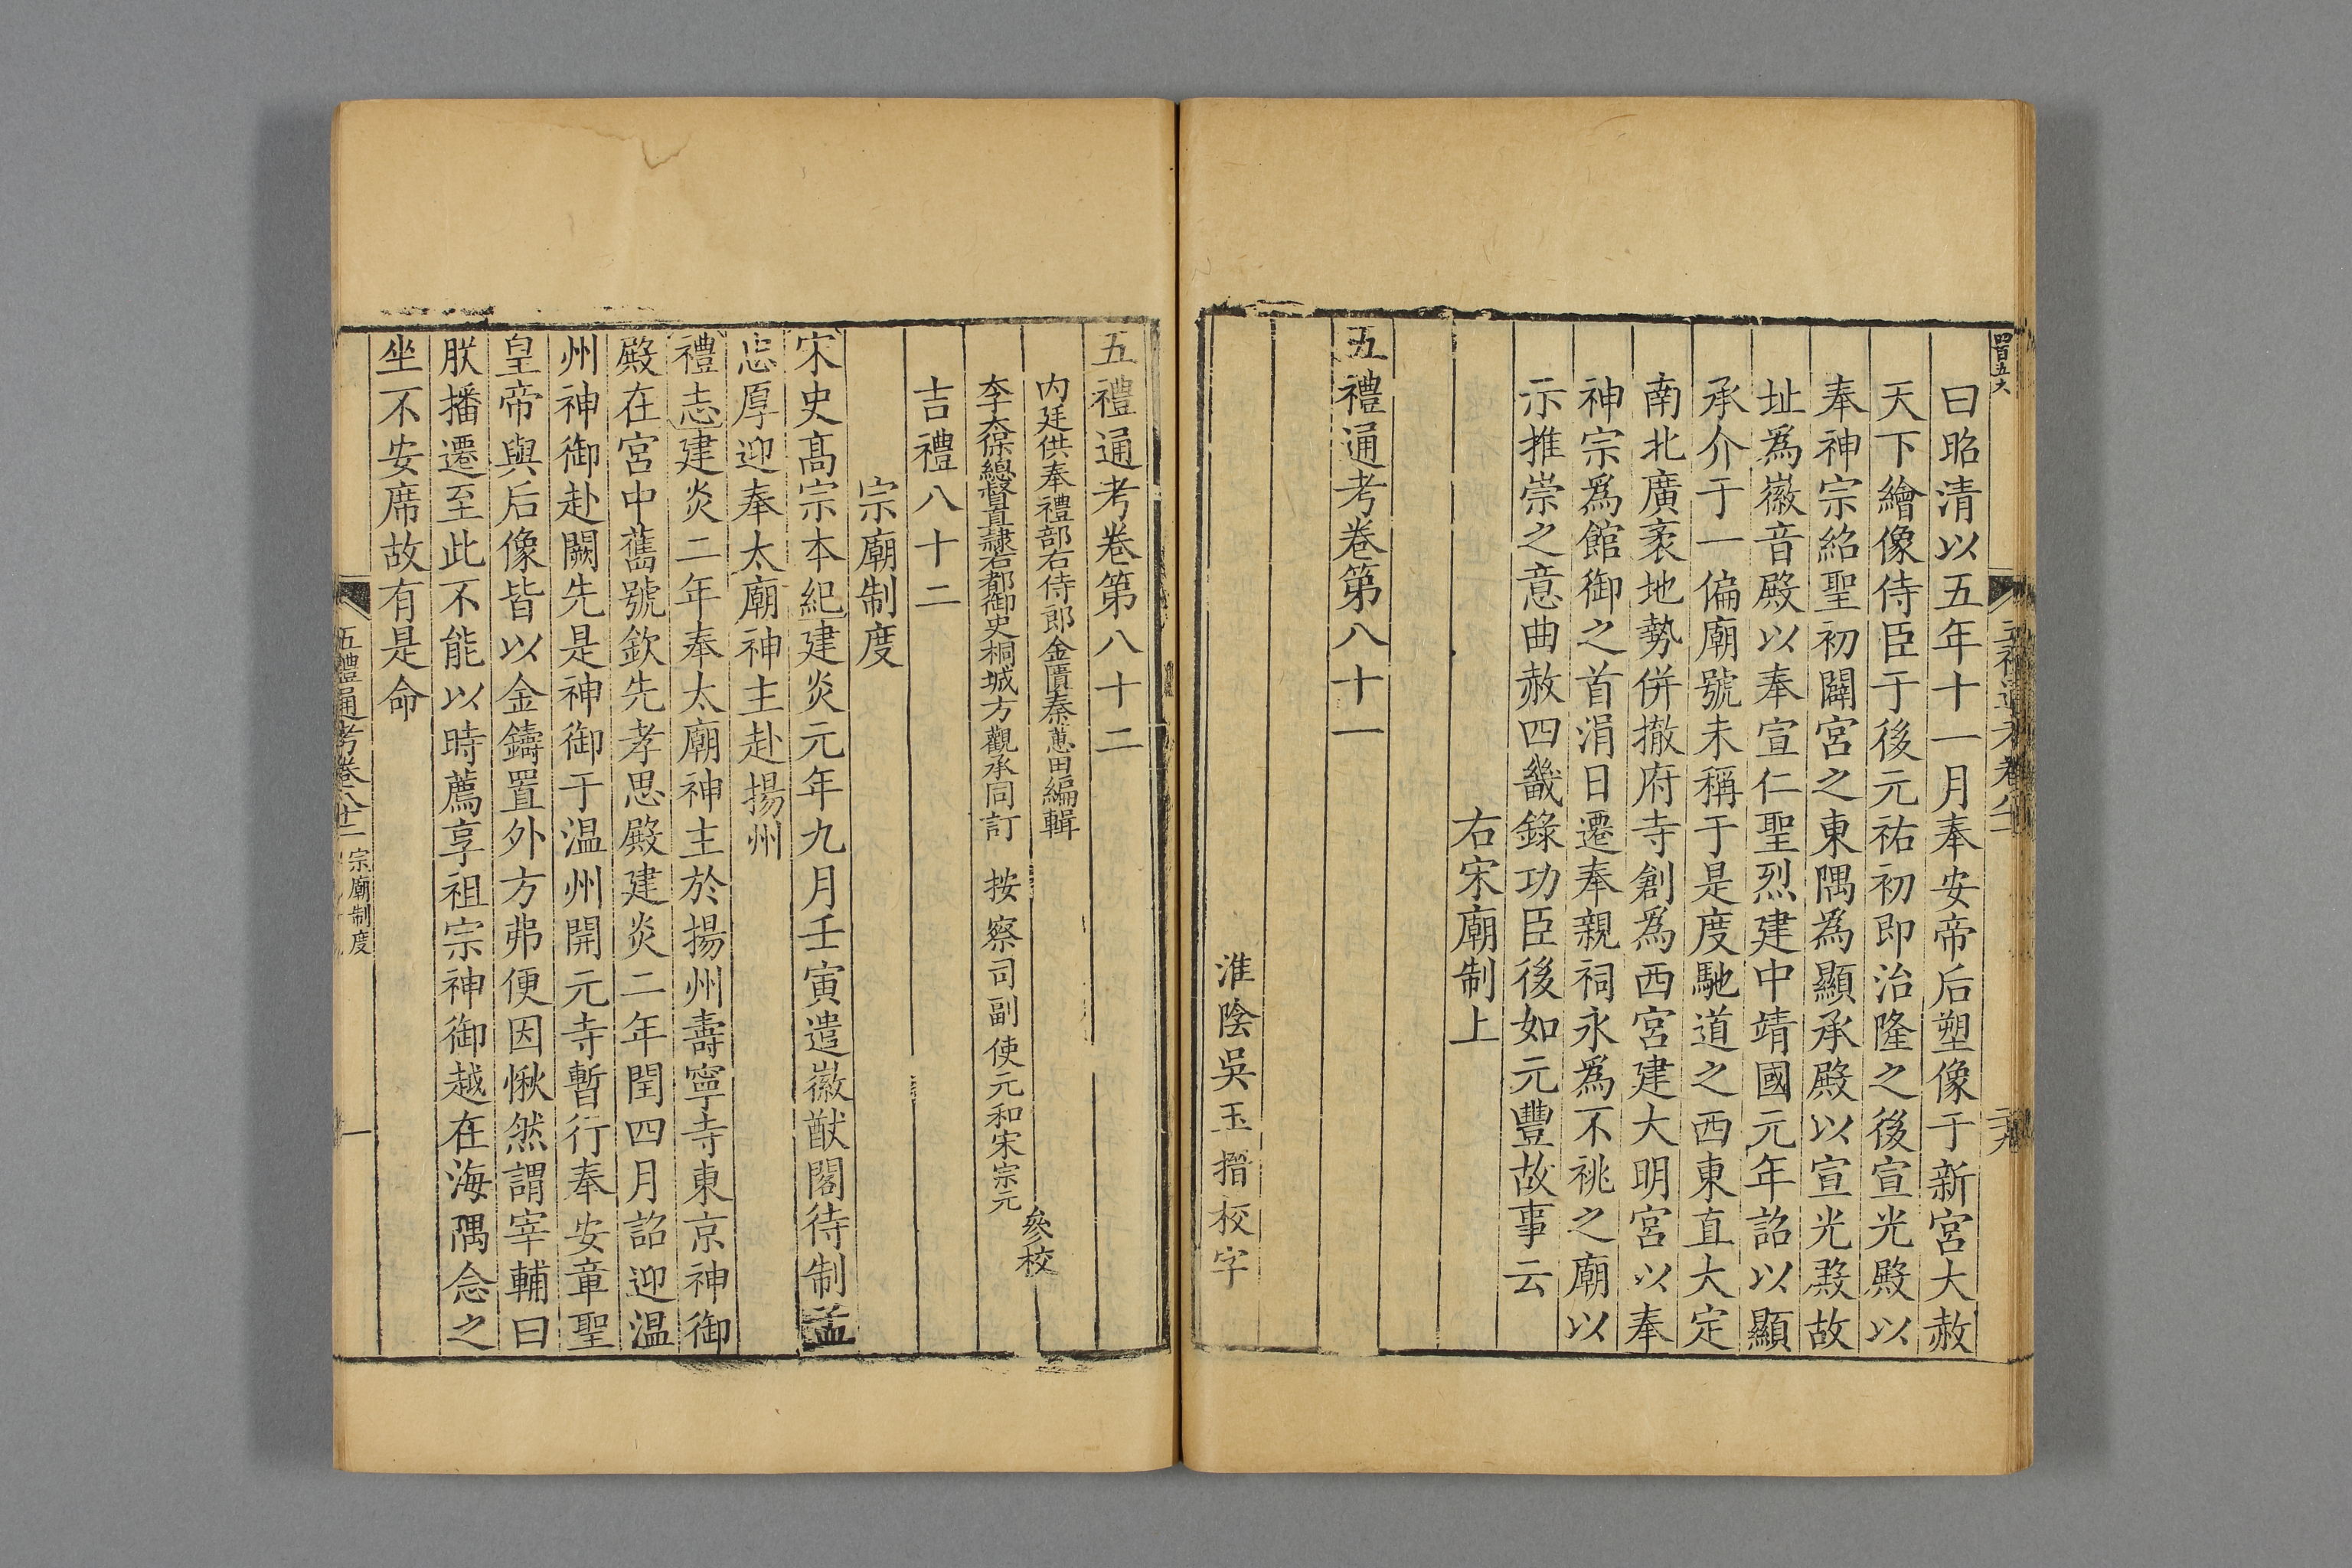 四百五大
曰昭清以五年十一月奉安帝后塑像于新宮大赦
天下繪像侍臣于後元祐初即治隆之後宣光殿以
奉神宗紹聖初闢宮之東隅爲顯承殿以宣光殿故
址爲徽音殿以奉宣仁聖烈建中靖國元年詔以顯
承介于一偏廟號未稱于是度馳道之西東直大定
南北廣袤地勢併撤府寺創爲西宮建大明宮以奉
神宗爲館御之首涓日遷奉親祠永爲不祧之廟以
示推崇之意曲赦四畿錄功臣後如元豐故事云
右宋廟制上
五禮通考卷第八十一
淮陰吳玉搢校字
五禮通考卷第八十二
内廷供奉禮部右侍郎金匱秦蕙田編輯
李太保總督直隷右都御史桐城方觀承同訂
按察司副使元和宋宗元
參校
吉禮八十二
宗廟制度
宋史髙宗本紀建炎元年九月壬寅遣徽猷閣待制孟
忠厚迎奉太廟神主赴揚州
禮志建炎二年奉太廟神主於揚州壽寧寺東京神御
殿在宮中舊號欽先孝思殿建炎二年閏四月詔迎温
州神御赴闕先是神御于温州開元寺暫行奉安章聖
皇帝與后像皆以金鑄置外方弗便因愀然謂宰輔曰
朕播遷至此不能以時薦享祖宗神御越在海隅念之
坐不安席故有是命
五禮通考卷八十二
宗廟制度
一